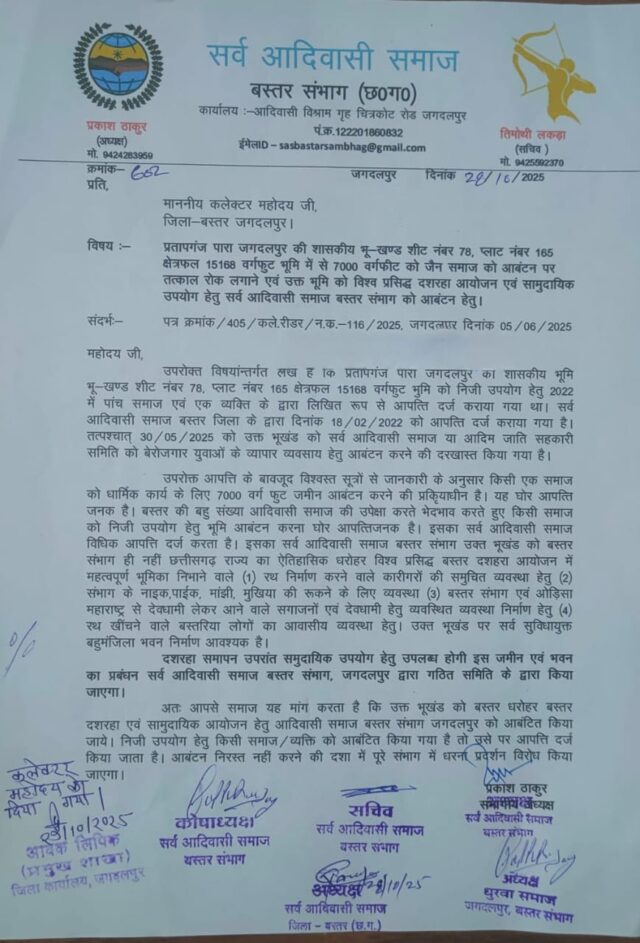 सर्व आदिवासी समाज
बस्तर संभाग (छ0ग0)
कार्यालय :–आदिवासी विश्राम गृह चित्रकोट रोड जगदलपुर
पं.क्र.122201860832
ईमेलाID – sasbastarsambhag@gmail.com
प्रकाश ठाकुर
(अध्यक्ष)
मो. 9424283959
तिमोथी लकड़ा
(सचिव )
मो. 9425592370
क्रमांक– 602
जगदलपुर दिनांक 28/10/2025
प्रति,
माननीय कलेक्टर महोदय जी,
जिला–बस्तर जगदलपुर।
विषय :– प्रतापगंज पारा जगदलपुर की शासकीय भू–खण्ड शीट नंबर 78, प्लाट नंबर 165
क्षेत्रफल 15168 वर्गफुट भूमि में से 7000 वर्गफीट को जैन समाज को आबंटन पर
तत्काल रोक लगाने एवं उक्त भूमि को विश्व प्रसिद्ध दशरहा आयोजन एवं सामुदायिक
उपयोग हेतु सर्व आदिवासी समाज बस्तर संभाग को आबंटन हेतु।
संदर्भः– पत्र क्रमांक /405/कले.रीडर/न.क.–116/2025, जगदलपुर दिनांक 05/06/2025
महोदय जी,
उपरोक्त विषयांन्तर्गत लख ह कि प्रतापगंज पारा जगदलपुर का शासकीय भूमि
भू–खण्ड शीट नंबर 78, प्लाट नंबर 165 क्षेत्रफल 15168 वर्गफुट भुमि को निजी उपयोग हेतु 2022
में पांच समाज एवं एक व्यक्ति के द्वारा लिखित रूप से आपत्ति दर्ज कराया गया था। सर्व
आदिवासी समाज बस्तर जिला के द्वारा दिनांक 18/02/2022 को आपत्ति दर्ज कराया गया है।
तत्पश्चात् 30/05/2025 को उक्त भूखंड को सर्व आदिवासी समाज या आदिम जाति सहकारी
समिति को बेरोजगार युवाओं के व्यापार व्यवसाय हेतु आबंटन करने की दरखास्त किया गया है।
उपरोक्त आपत्ति के बावजूद विश्वस्त सूत्रों से जानकारी के अनुसार किसी एक समाज
को धार्मिक कार्य के लिए 7000 वर्ग फुट जमीन आबंटन करने की प्रक्रियाधीन है। यह घोर आपत्ति
जनक है। बस्तर की बहु संख्या आदिवासी समाज की उपेक्षा करते भेदभाव करते हुए किसी समाज
को निजी उपयोग हेतु भूमि आबंटन करना घोर आपत्तिजनक है। इसका सर्व आदिवासी समाज
विधिक आपत्ति दर्ज करता है। इसका सर्व आदिवासी समाज बस्तर संभाग उक्त भूखंड को बस्तर
संभाग ही नहीं छत्तीसगढ़ राज्य का ऐतिहासिक धरोहर विश्व प्रसिद्ध बस्तर दशहरा आयोजन में
महत्वपूर्ण भूमिका निभाने वाले (1) रथ निर्माण करने वाले कारीगरों की समुचित व्यवस्था हेतु (2)
संभाग के नाइक,पाईक, मांझी, मुखिया की रूकने के लिए व्यवस्था (3) बस्तर संभाग एवं ओड़िसा
महाराष्ट्र से देवधामी लेकर आने वाले सगाजनों एवं देवधामी हेतु व्यवस्थित व्यवस्था निर्माण हेतु (4)
रथ खींचने वाले बस्तरिया लोगों का आवासीय व्यवस्था हेतु। उक्त भूखण्ड पर सर्व सुविधायुक्त
बहुमंजिला भवन निर्माण आवश्यक है।
दशरहा समापन उपरांत समुदायिक उपयोग हेतु उपलब्ध होगी इस जमीन एवं भवन
का प्रबंधन सर्व आदिवासी समाज बस्तर संभाग, जगदलपुर द्वारा गठित समिति के द्वारा किया
जाएगा।
अतः आपसे समाज यह मांग करता है कि उक्त भूखण्ड को बस्तर धरोहर बस्तर
दशहरा एवं सामुदायिक आयोजन हेतु आदिवासी समाज बस्तर संभाग जगदलपुर को आबंटित किया
जाये। निजी उपयोग हेतु किसी समाज/व्यक्ति को आबंटित किया गया है तो उसे पर आपत्ति दर्ज
किया जाता है। आबंटन निरस्त नहीं करने की दशा में पूरे संभाग में धरना प्रदर्शन विरोध किया
जाएगा।
कलेक्टर
महोदय को
दिया गया।
28/10/2025
आवक लिपिक
(प्रमुख शाखा)
जिला कार्यालय, जगदलपुर
कोषाध्यक्ष
सर्व आदिवासी समाज
बस्तर संभाग
सचिव
सर्व आदिवासी समाज
बस्तर संभाग
प्रकाश ठाकुर
संभागीय अध्यक्ष
सर्व आदिवासी समाज
बस्तर संभाग
28/10/25
अध्यक्ष
सर्व आदिवासी समाज
जिला – बस्तर (छ.ग.)
अध्यक्ष
धुरवा समाज
जगदलपुर, बस्तर संभाग